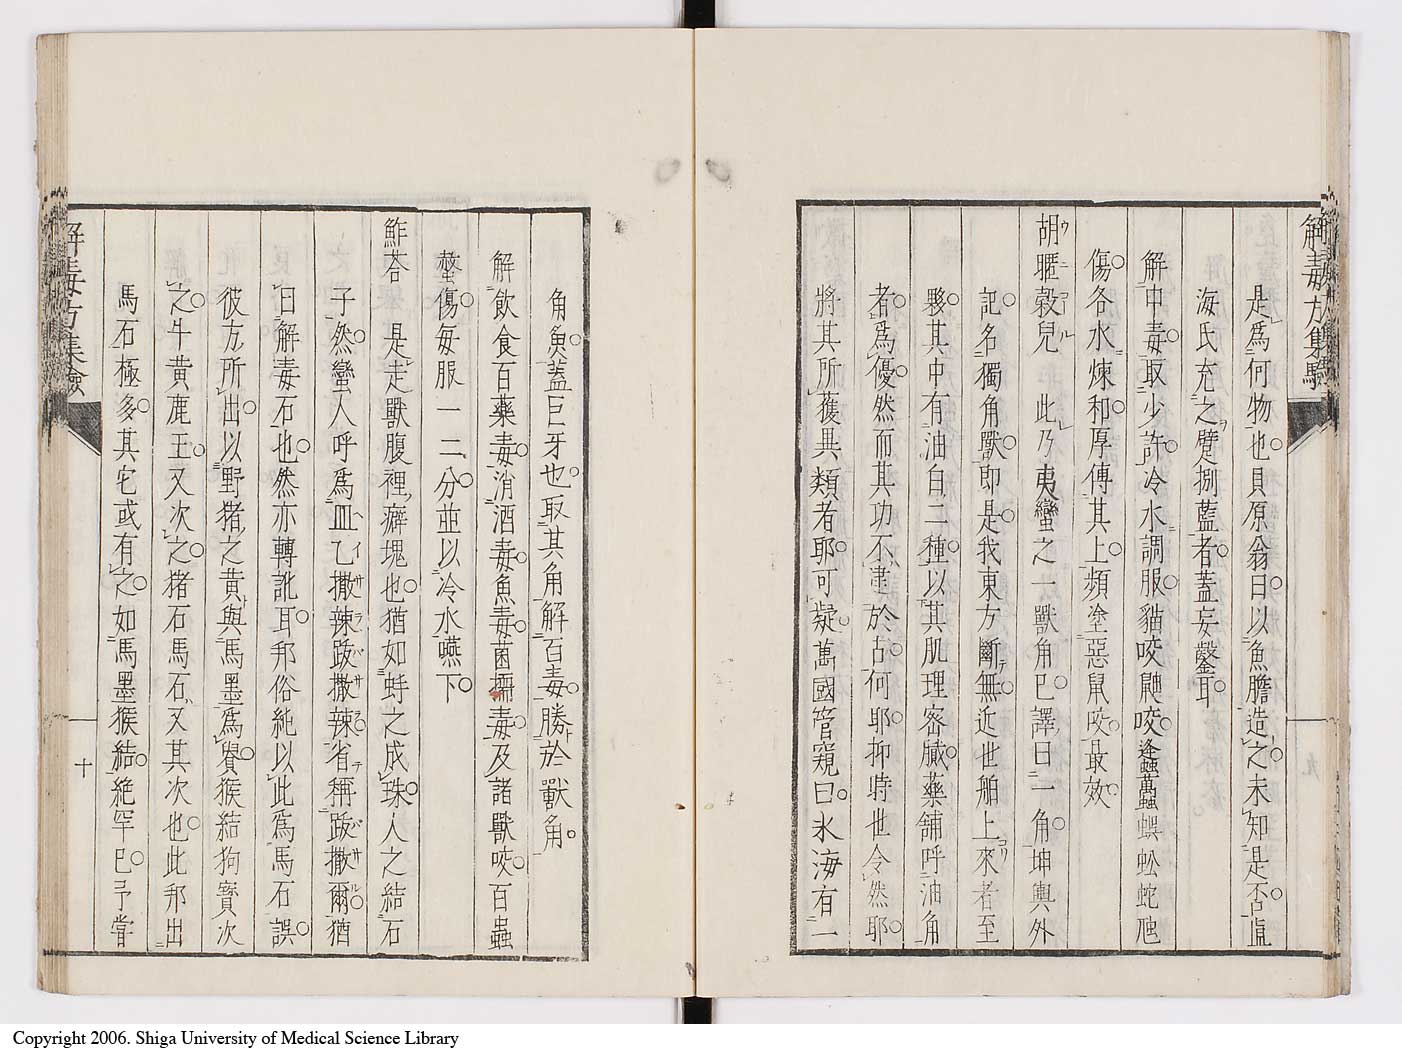 解毒方集驗
是爲何物也貝原翁曰以魚膽造之未知是否虛
海氏充之躄捌藍者蓋妄鑿耳
解中毒取少許冷水調服貓咬鼬咬蜂蠆蜈蚣蛇虺
傷各水煉和厚傳其上類塗惡鼠咬最效
胡暱穀兒 此乃夷蠻之一獸角巳譯曰一角坤輿外
記名獨角獸即是我東方斷無近世舶上來者至
夥其中有油白二種以其肌理密膩藥舖呼油角
者爲優然而其功不逮於古何耶抑時世令然耶
將其所獲異類者耶可疑萬國管窺曰氷海有一
九
角魚蓋巨牙也取其角解百毒勝於獸角
解飲食百藥毒消酒毒魚毒菌 毒及諸獸咬百蟲
螫傷每服一二分並以冷水嚥下
鮓荅 是走獸腹裡癖塊也猶如蚌之成珠人之結石
子然蠻人呼爲皿乙撒辣跋撒辣省稱跋撒爾猶
曰解毒石也然亦轉訛耳邦俗純以此爲馬石誤
彼方所出以野猪之黄與馬墨爲賽猴結狗寳次
之牛黄鹿玉又次之猪石馬石又其次也此邦出
馬石極多其它或有之如馬墨猴結絶罕巳予嘗
解毒方集驗
十
Copyright 2006. Shiga University of Medical Science Library